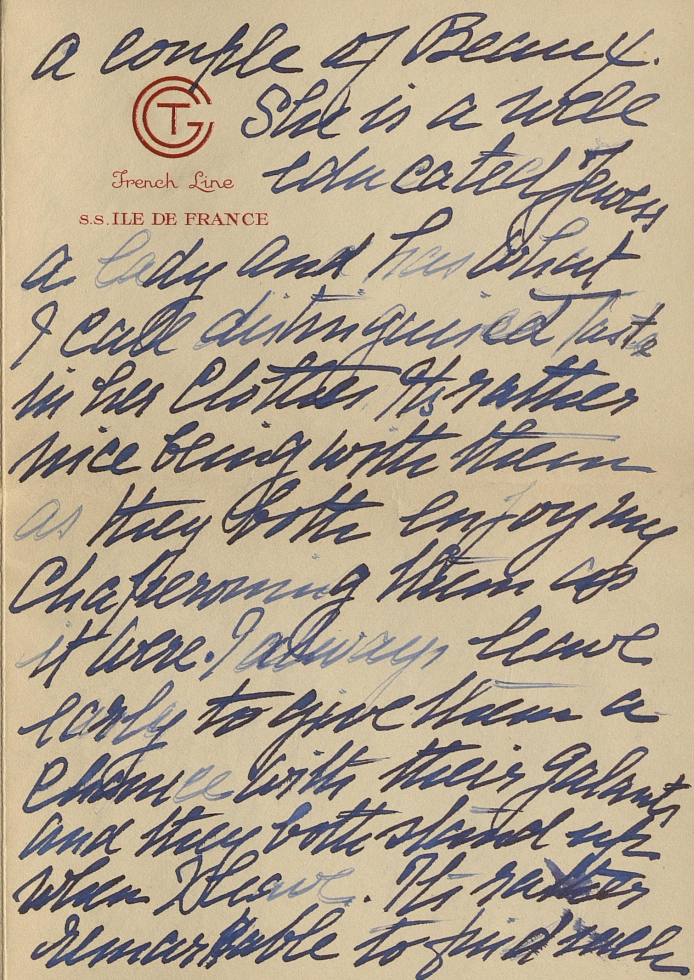 a couple of Beaux.
CGT
She is a well
French Line
educated Jewess
s.s. ILE DE FRANCE
a lady and has what
I call distinguised taste
in her Clothes Its rather
nice being with them
as they both enjoy my
Chaperoning them as
it were. I always leave
early to give them a
chance with their galants
and they both stand up
when I leave. Its rather
remarkable to find such